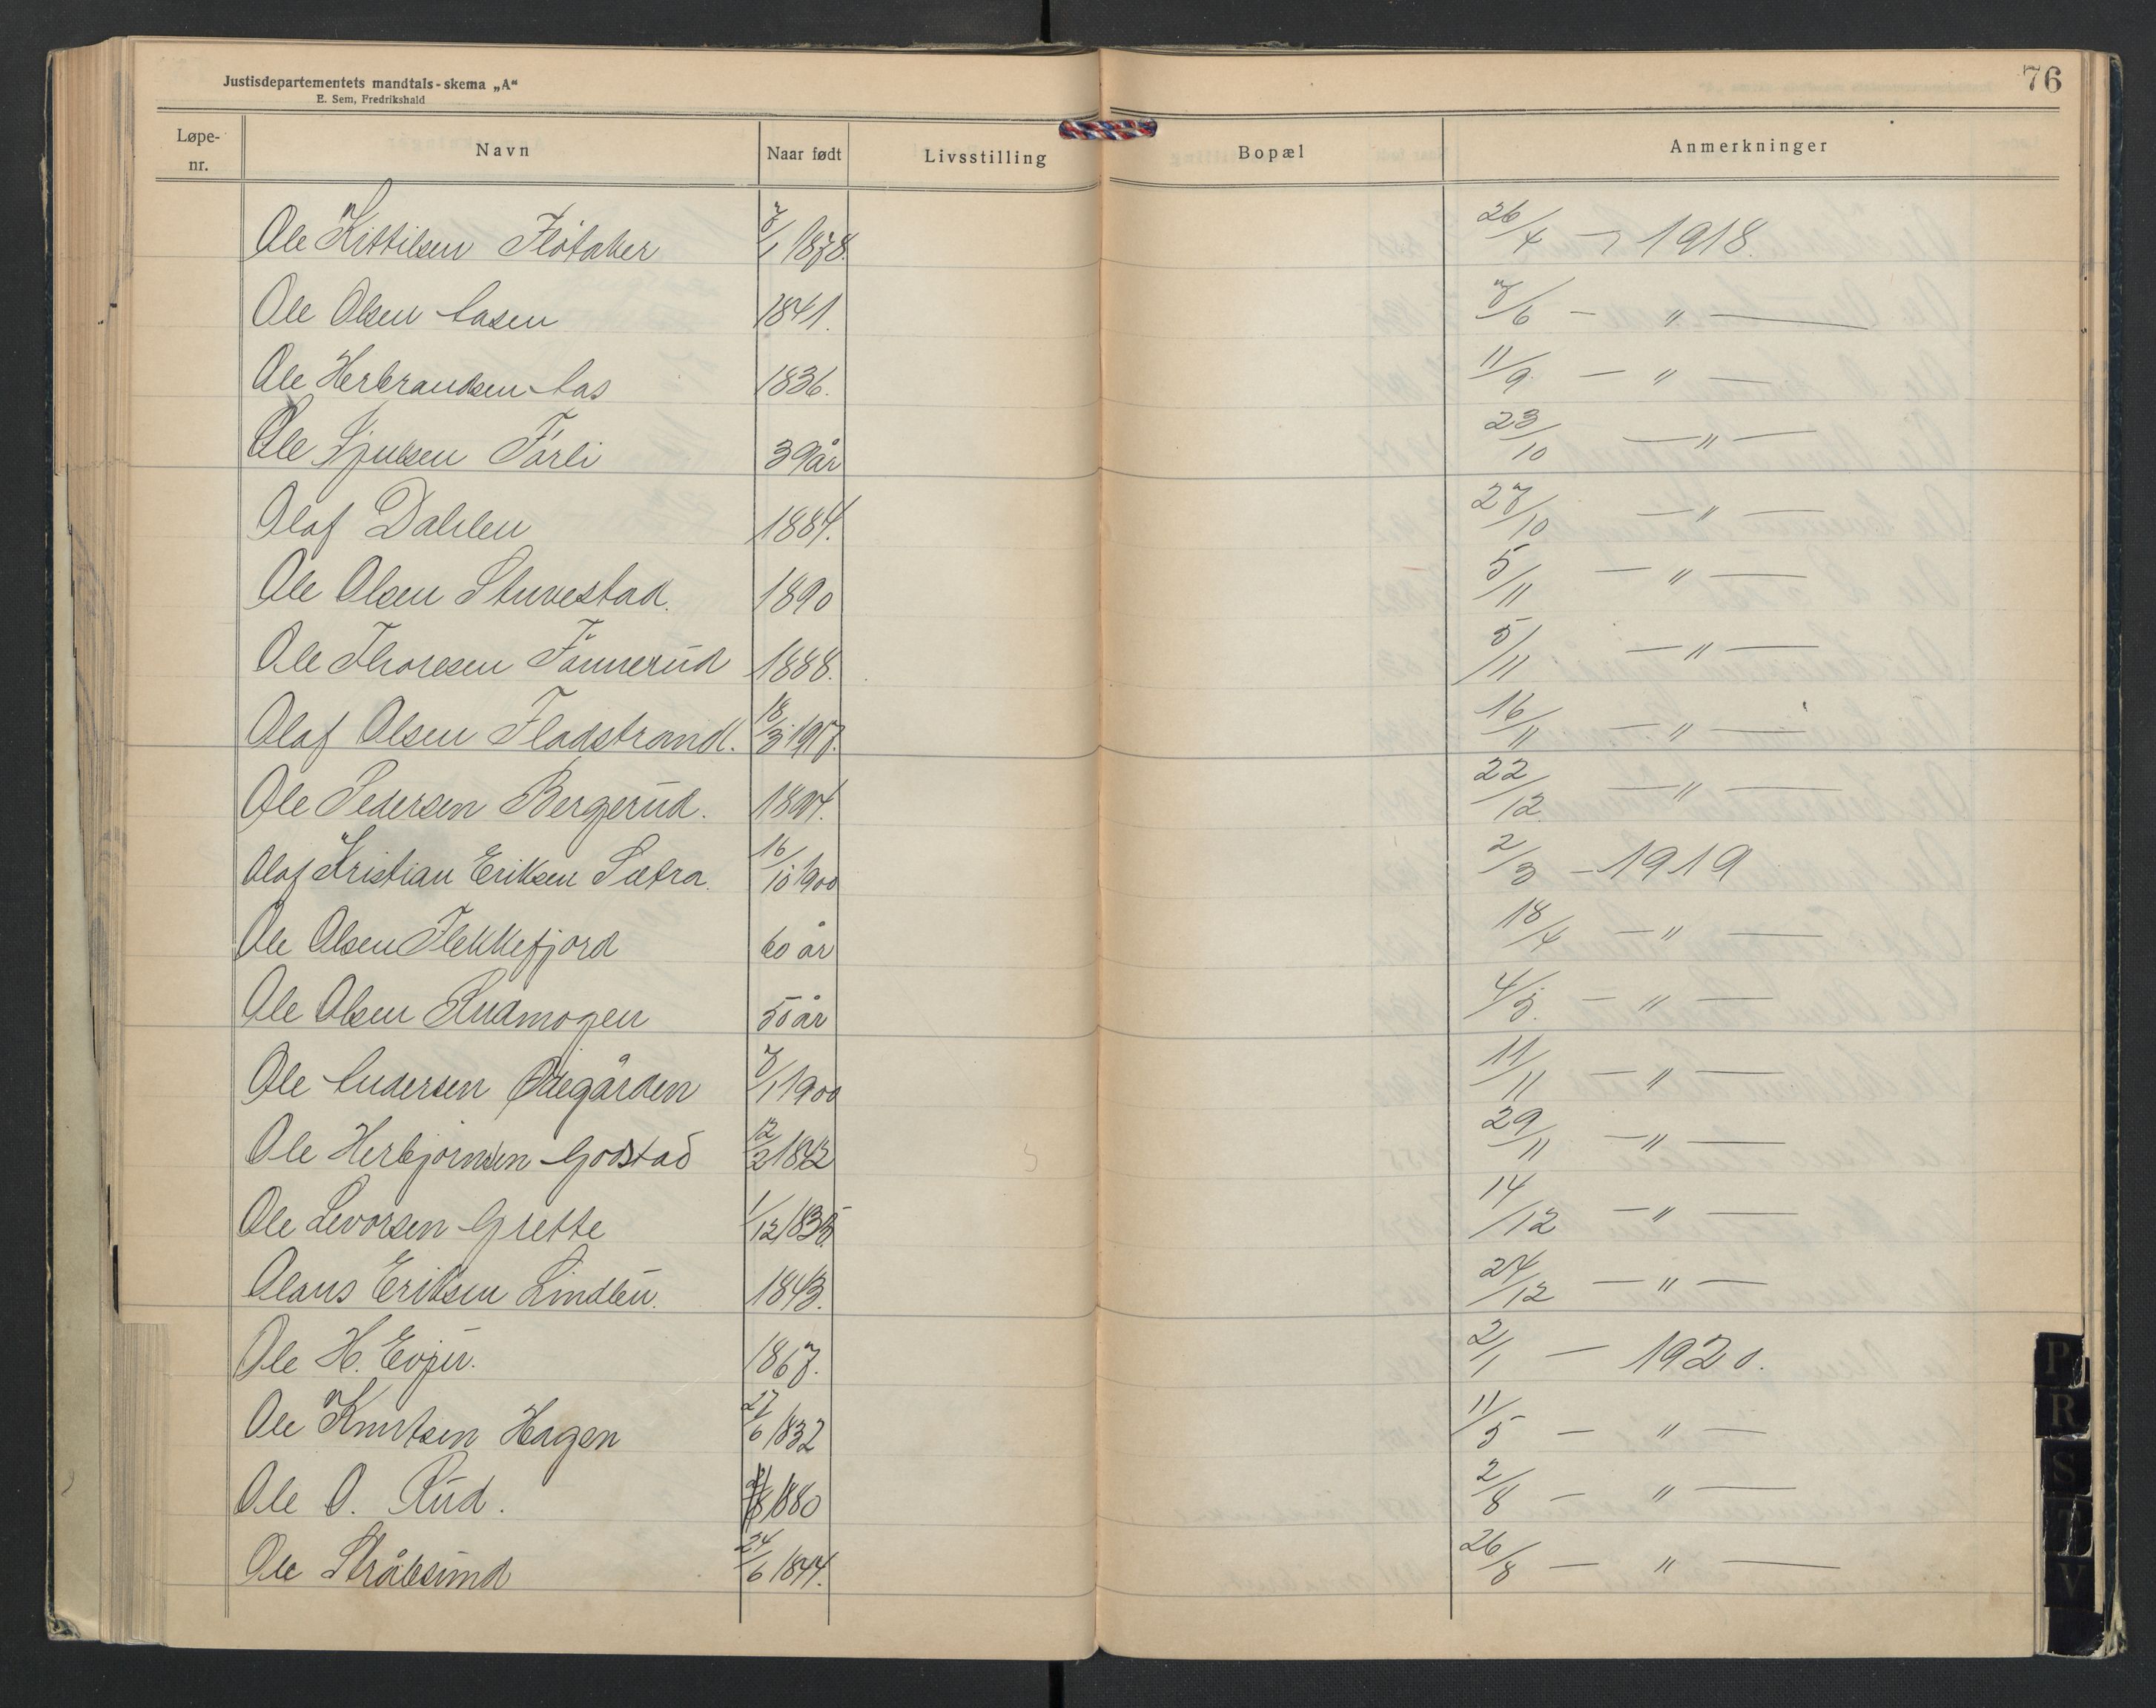 Justisdepartementets mandtals-skema „A“
E. Sem, Fredrikshald
76
Løpe-nr. Navn Naar født Livsstilling Bopæl Anmerkninger
Ole Kittilsen Fløtaker 7/1 1878. 26/4 - 1918.
Ole Olsen Aasen 1841. 7/6 - " -
Ole Herbrandsen Aas 1836. 11/9. - " -
Ole Sjulsen Førli 39 år 23/10 - " -
Olaf Dahlen 1884. 27/10 - " -
Ole Olsen Stuvestad. 1890 5/11 - " -
Ole Thoresen Tønnerud 1888. 5/11 - " -
Olaf Olsen Fladstrand. 18/3 1917. 16/11 - " -
Ole Pedersen Bergerud. 22/12 - " -
Olaf Kristian Eriksen Sætra. 16/10 1900 2/3 - 1919
Ole Olsen Flekkefjord 60 år 18/4 - " -
Ole Olsen Rudmogen 50 år 4/5. - " -
Ole Andersen Ødegården 7/1 1900 11/11 - " -
Ole Herbjørnsen Godstad 12/2 1842 29/11 - " -
Ole Levorsen Grette 1/12 1835. 14/12 - " -
Olaus Eriksen Lindlíu. 1843. 24/12 - " -
Ole H. Evju. 1867. 2/1 - 1920.
Ole Knutsen Hagen 27/6 1832 11/5 - " -
Ole O. Rud. 1880 2/8 - " -
Ole Stråbsund 24/6 1844. 26/8 - " -
P
R
S
T
V